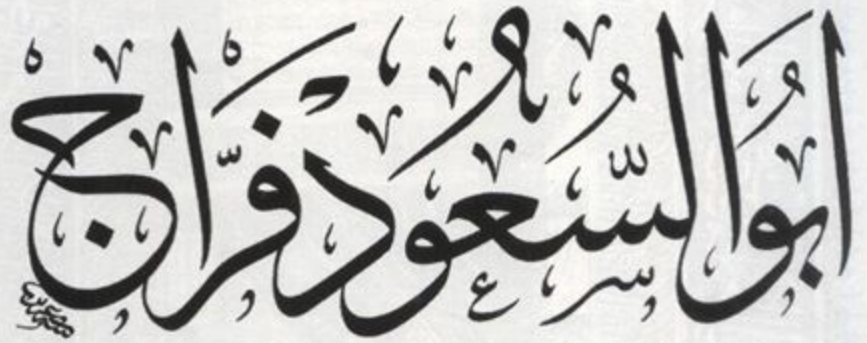 ابُو السُّعُود فَرَّاج